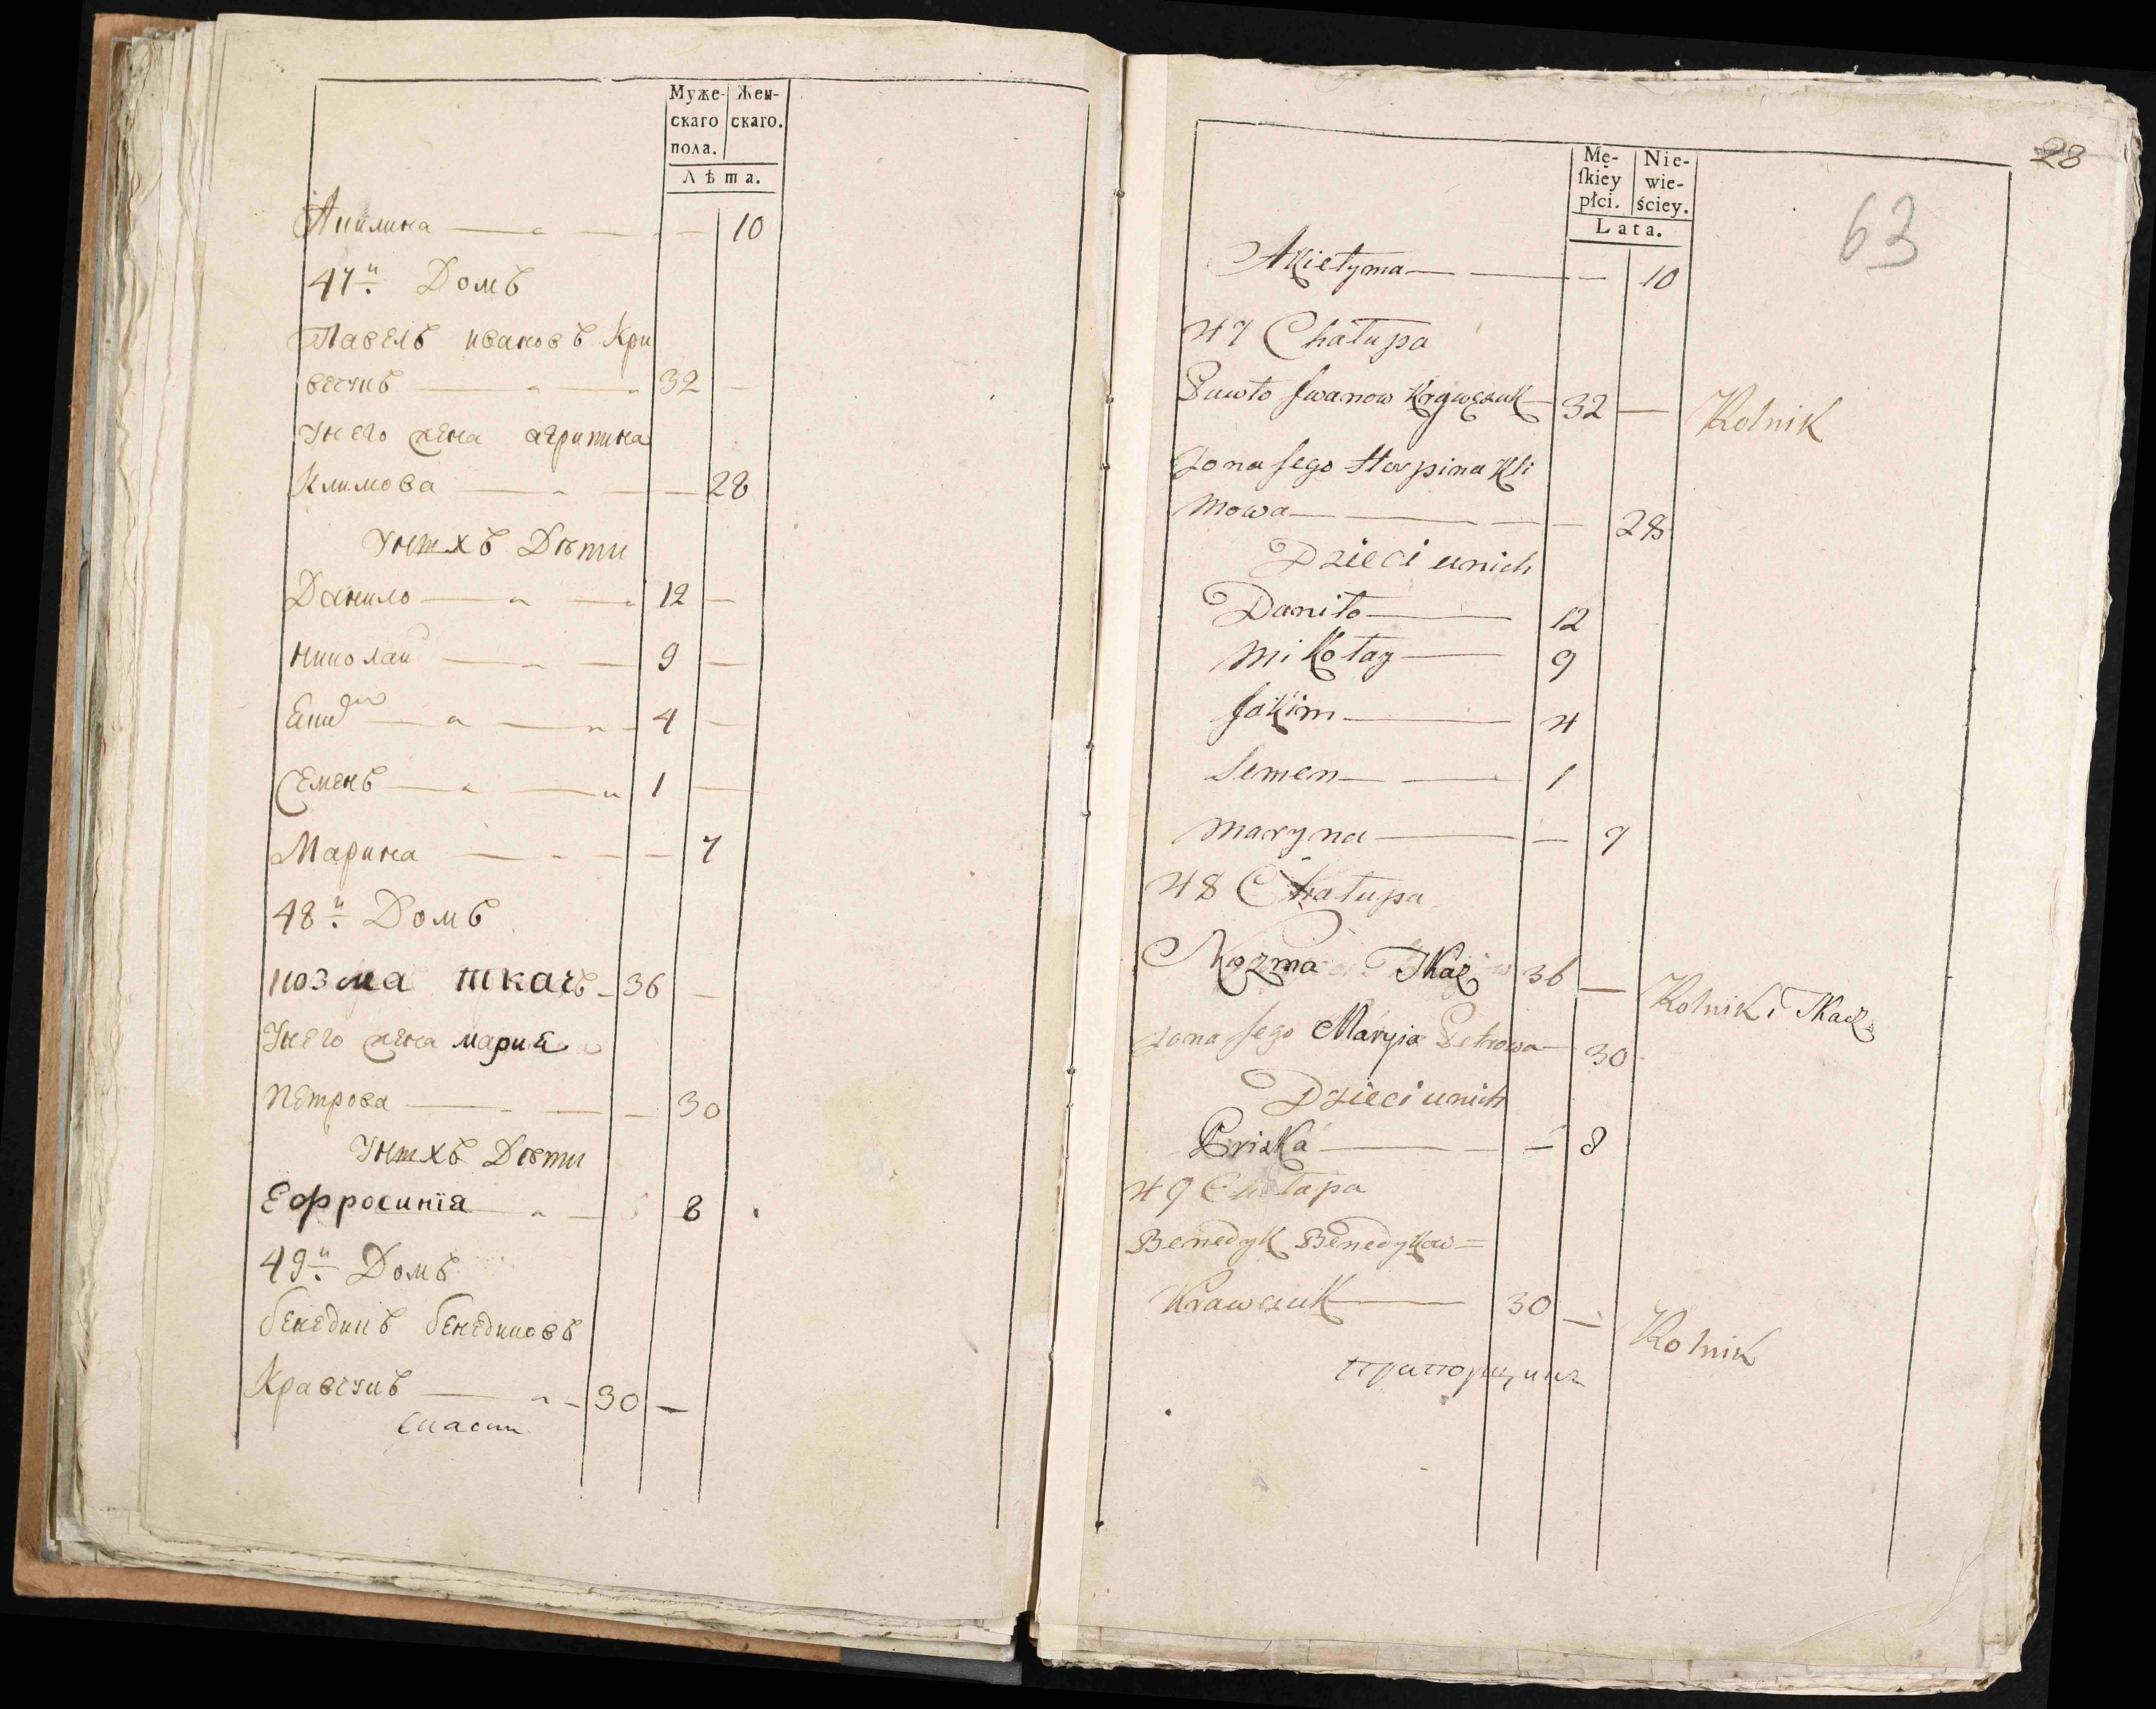 Муже- Жен-
скаго скаго.
пола.
Лѣта.
Акилина — — 10
47й Домъ
Павелъ ивановъ Кри
вчукъ — 32 —
Унего жена агрипина
Климова — — 28
Унихъ Дѣти
Данило — 12 —
николай — 9 —
— 4 —
Семенъ — 1 —
Марина — — 7
48й Домъ
козма ткачъ — 36 —
Унего жена мария
Петрова — — 30
Унихъ Дѣти
Ефросинїя — 8
49й Домъ
бенедикъ бенедиковъ
Кравчукъ — 30 —
28
63
Mę- Nie-
ſkiey wie-
płci. ściey.
Lata.
Akielyma — — 10
47 Chałupa
Pawło Iwanow Krawczuk 32 — Rolnik
Żona Jego Horpina Kli
mowa — — 28
Dzieci unich
Daniło — 12
Mikołay — 9
Jakim — 4
Semen — 1
Maryna — — 7
48 Chałupa
Kozma Tkaz 36 — Rolnik i Tkacz
Żona Jego Maryia Petrowa 30
Dzieci unich
Priska — — 8
49 Chałupa
Benedyk Benedykow =
Krawczuk — 30 — Rolnik
прапорщикъ